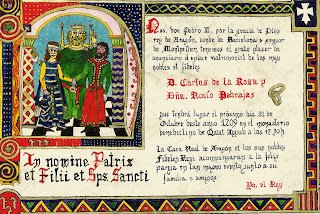 In nomine Patris
et Filii et Sps. Sancti
Nos, don Pedro II, por la gracia de Dios
rey de Aragón, conde de Barcelona y senyor
de Montpellier, tenemos el grato placer de
anunciaros el enlace matrimonial de los muy
nobles et fideles
D. Carlos de la Rosa y
Dña. Rocío Pedrajas
que tendrá lugar el próximo día 31 de
Octubre deste anyo 1209 en el monasterio
benedictino de Autol Aqved a las 17:30 h.
La Casa Real de Aragón et los sus nobles
Fideles Regi acompanyaran a la feliz
pareja en tan magno evento junto a su
familia e amigos
Yo, el Rey